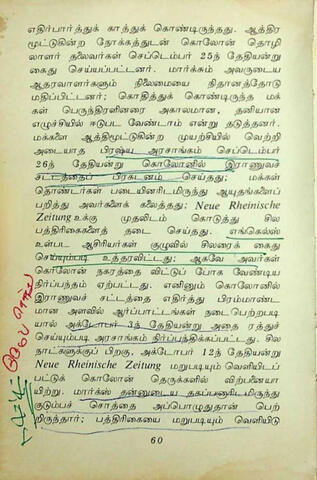 எதிர்பார்த்துக் காத்துக் கொண்டிருந்தது. ஆத்திர
மூட்டுகின்ற நோக்கத்துடன் கொலோன் தொழி
லாளர் தலைவர்கள் செப்டெம்பர் 25ந் தேதியன்று
கைது செய்யப்பட்டனர். மார்க்சும் அவருடைய
ஆதரவாளர்களும் நிலைமையை நிதானத்தோடு
மதிப்பிட்டனர்; கொதித்துக் கொண்டிருந்த மக்
கள் பெருந்திரளினரை அகாலமான, தனியான
எழுச்சியில் ஈடுபட வேண்டாம் என்று தடுத்தனர்.
மக்களை ஆத்திமூட்டுகின்ற முயற்சியில் வெற்றி
அடையாத பிரஷ்ய அரசாங்கம் செப்டெம்பர்
26ந் தேதியன்று கொலோனில் இராணுவச்
சட்டத்தைப் பிரகடனம் செய்தது; மக்கள்
தொண்டர்கள் படையினரிடமிருந்து ஆயுதங்களைப்
பறித்து அவர்களைக் கலைத்தது; Neue Rheinische
Zeitung உக்கு முதலிடம் கொடுத்து சில
பத்திரிகைளைத் தடை செய்தது. எங்கெல்ஸ்
உள்பட ஆசிரியர்கள் குழுவில் சிலரைக் கைது
செய்யும்படி உத்தரவிட்டது; ஆகவே அவர்கள்
கொலோன் நகரத்தை விட்டுப் போக வேண்டிய
நிர்ப்பந்தம் ஏற்பட்டது. எனினும் கொலோனில்
இராணுவச் சட்டத்தை எதிர்த்து பிரம்மாண்ட
மான அளவில் ஆர்ப்பாட்டங்கள் நடைபெற்றபடி
யால் அக்டோபர் 3ந் தேதியன்று அதை ரத்துச்
செய்யும்படி அரசாங்கம் நிர்ப்பந்திக்கப்பட்டது. சில
நாட்களுக்குப் பிறகு, அக்டோபர் 12ந் தேதியன்று
Neue Rheinische Zeitung மறுபடியும் வெளியிடப்
பட்டுக் கொலோன் தெருக்களில் விற்பனையா
யிற்று. மார்க்ஸ் தன்னுடைய தகப்பனாரிடமிருந்து
குடும்பச் சொத்தை அப்பொழுதுதான் பெற்
றிருந்தார்; பத்திரிகையை மறுபடியும் வெளியிடு
60